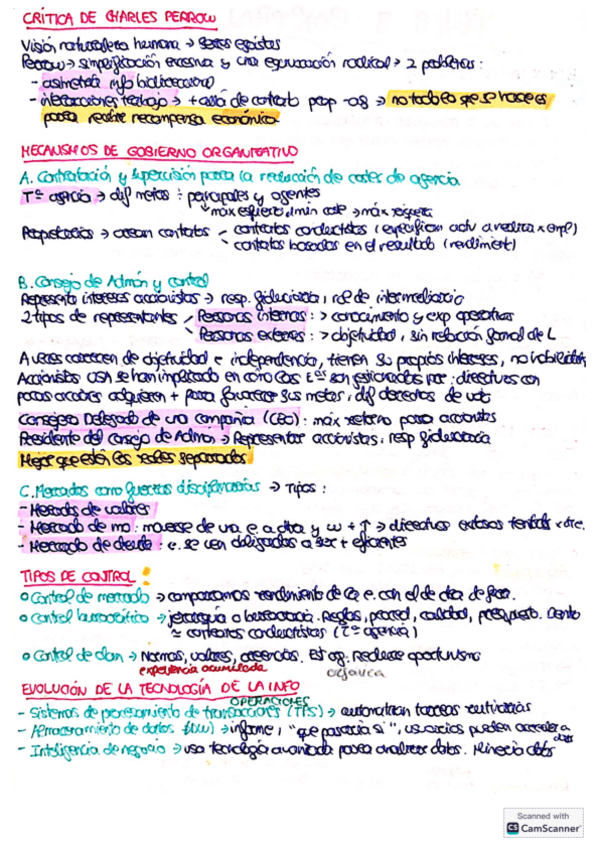 CRÍTICA DE CHARLES PERROW
Visión naturaleza humana → Seres egoístas
Perrow → simplificación excesiva y una equivocación radical → 2 problemas:
- asimetría info bidireccional
- interacciones trabajo → + allá de contrato prop-ag → no todo es que se hace es
para recibir recompensa económica
MECANISMOS DE GOBIERNO ORGANIZATIVO
A. Contratación y supervisión para la reducción de costes de agencia
Tª agencia → dif metas ÷ principales y agentes
máx esfuerzo, min coste → máx riqueza
Propietarios → crean contratos
contratos conductistas (especifican actv a realizar x empl)
contratos basados en el resultado (rendimient)
B. Consejo de Admón y control
Representa intereses accionistas → resp. fiduciaria, rol de intermediario
2 tipos de representantes
Personas internas: > conocimiento y exp operativa
Personas externas: > objetividad, sin relación formal de L
A veces carecen de objetividad e independencia, tienen sus propios intereses, no habilidades
Accionistas USA se han implicado en cómo las Eªs son gestionadas por: directivos con
pocas acciones adquieren + para favorecer sus metas, dif derechos de voto
Consejero Delegado de una compañía (CEO): máx retorno para accionistas
Presidente del Consejo de Admón → Representar accionistas, resp fiduciaria
Mejor que estén los roles separados
C. Mercados como fuerzas disciplinarias → Tipos:
- Mercado de valores
- Mercado de mo: moverse de una e. a otra y w + ↑ → directivos exitosos tentados x otre.
- Mercado de deuda: e. se ven obligadas a ser + eficientes
TIPOS DE CONTROL:
Control de mercado → comparamos rendimiento de la e. con el de otra de fuera.
Control burocrático → jerarquía o burocracia. Reglas, proced, calidad, presupuesto. Dento
≈ contratos conductistas (Tª agencia)
Control de clan → Normas, valores, creencias. Est og. Reduce oportunismo
experiencia acumulada
orgánica
EVOLUCIÓN DE LA TECNOLOGÍA DE LA INFO
OPERACIONES
- Sistemas de procesamiento de transacciones (TPS) → automatizan tareas rutinarias
- Almacenamiento de datos (DW) → informe, "que pasaría si", usuarios pueden acceder a
datos
- Inteligencia de negocio → usa tecnología avanzada para analizar datos. Minería datos
Scanned with
CS CamScanner